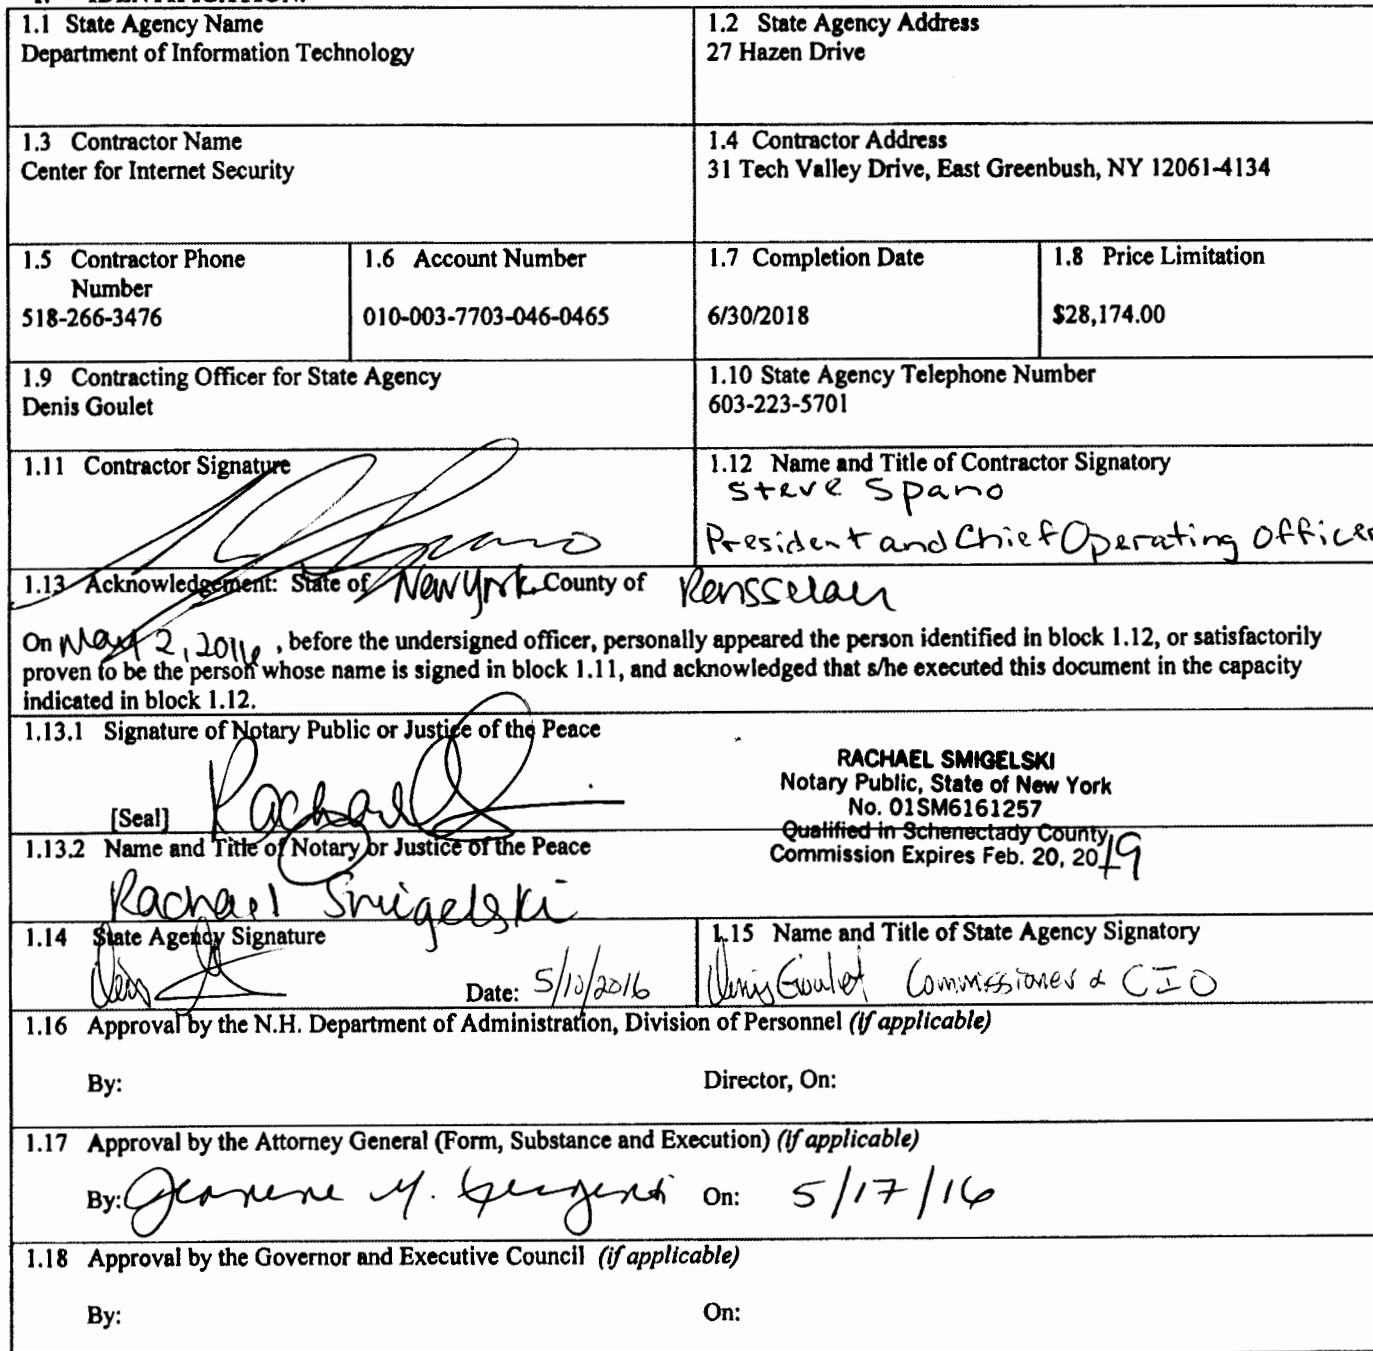 1.1 State Agency Name
Department of Information Technology
1.2 State Agency Address
27 Hazen Drive
1.3 Contractor Name
Center for Internet Security
1.4 Contractor Address
31 Tech Valley Drive, East Greenbush, NY 12061-4134
1.5 Contractor Phone
Number
518-266-3476
1.6 Account Number
010-003-7703-046-0465
1.7 Completion Date
6/30/2018
1.8 Price Limitation
$28,174.00
1.9 Contracting Officer for State Agency
Denis Goulet
1.10 State Agency Telephone Number
603-223-5701
1.11 Contractor Signature
1.12 Name and Title of Contractor Signatory
Steve Spano
President and Chief Operating Officer
1.13 Acknowledgement: State of New York County of Rensselaer
On May 2, 2016, before the undersigned officer, personally appeared the person identified in block 1.12, or satisfactorily
proven to be the person whose name is signed in block 1.11, and acknowledged that s/he executed this document in the capacity
indicated in block 1.12.
1.13.1 Signature of Notary Public or Justice of the Peace
[Seal] Rachael
RACHAEL SMIGELSKI
Notary Public, State of New York
No. 01SM6161257
Qualified in Schenectady County
Commission Expires Feb. 20, 2019
1.13.2 Name and Title of Notary or Justice of the Peace
Rachael Smigelski
1.14 State Agency Signature
Date: 5/10/2016
1.15 Name and Title of State Agency Signatory
Denis Goulet Commissioner & CIO
1.16 Approval by the N.H. Department of Administration, Division of Personnel (if applicable)
By: Director, On:
1.17 Approval by the Attorney General (Form, Substance and Execution) (if applicable)
By: On: 5/17/16
1.18 Approval by the Governor and Executive Council (if applicable)
By: On: